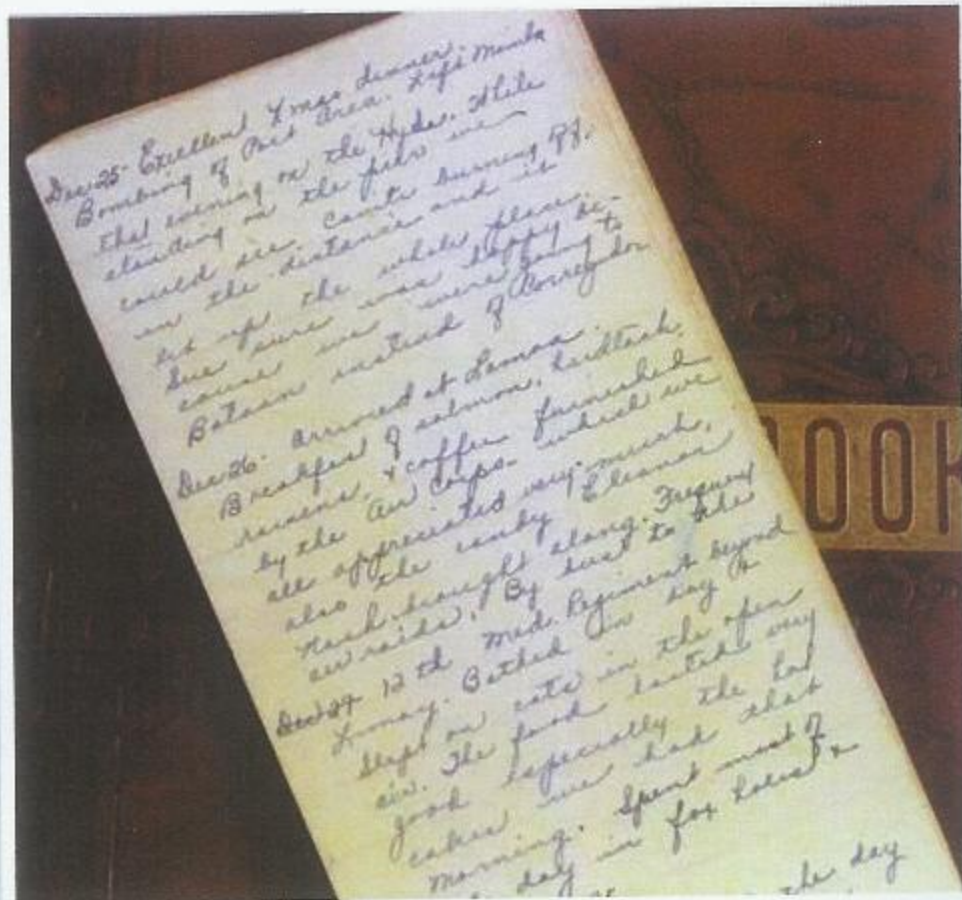 Dec 25- Excellent Xmas dinner.
Bombing of Port Area. Left Manila
that evening on the Hyde. While
standing on the pier we
could see Cavite burning
in the distance and it
lit up the whole place.
Sue sure was happy be-
cause we were going to
Bataan instead of Corregidor
Dec 26. Arrived at Lamao.
Breakfast of salmon, hardtack,
raisins, & coffee furnished
by the Air Corps- which we
all appreciated very much,
also the candy Eleanor
brought along. Frequent
air raids. By bus to the
Dec 27 12th Med. Regiment beyond
Limay. Bathed in bay &
slept on cots in the open
air. The food tasted very
good especially the hot
cakes we had that
morning. Spent most of
day in fox holes &
the day
OOK